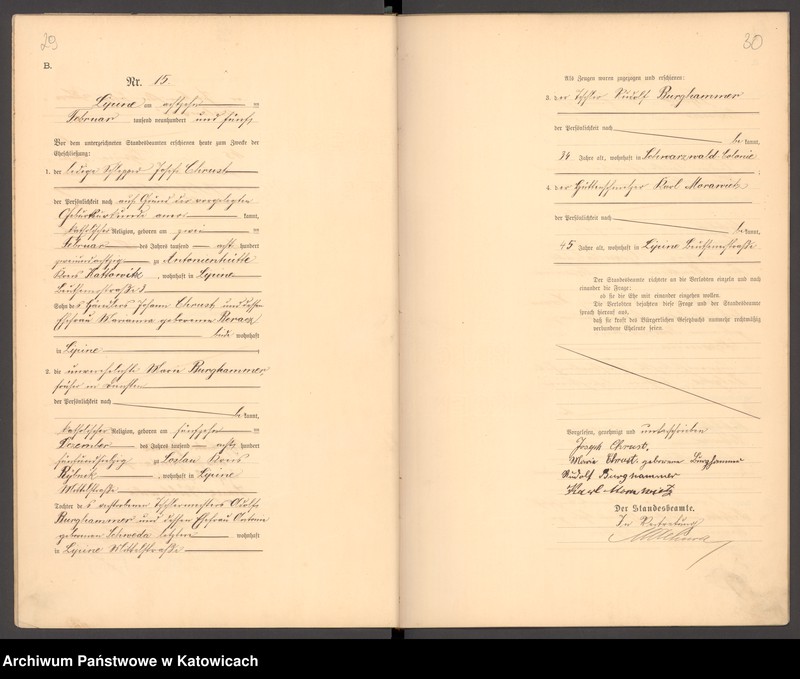 29
B.
Nr. 15.
Lipine am achtzehnten
Februar tausend neunhundert und fünf
Vor dem unterzeichneten Standesbeamten erschienen heute zum Zwecke der
Eheschließung:
1. der ledige Schlepper Joseph Chrust
der Persönlichkeit nach auf Grund der vorgelegten
Geburtsurkunde aner kannt,
katholischer Religion, geboren am zwei
Februar des Jahres tausend acht hundert
zweiundachtzig zu Antonienhütte
Kreis Kattowitz, wohnhaft in Lipine
Beuthenerstraße
Sohn des Händlers Johann Chrust und dessen
Ehefrau Marianna geborenen
beide wohnhaft
in Lipine
2. die unverehelichte Marie Burghammer,
früher in Diensten
der Persönlichkeit nach
be kannt,
katholischer Religion, geboren am fünfzehn
Dezember des Jahres tausend acht hundert
fünfundsiebzig zu Loslau Kreis
Rybnik, wohnhaft in Lipine
Mittelstraße
Tochter des verstorbenen Tischlermeisters Adolf
Burghammer und dessen Ehefrau
geborenen Schweda letztere wohnhaft
in Lipine Mittelstraße
30
Als Zeugen waren zugezogen und erschienen:
3. der Tischler Rudolf Burghammer
der Persönlichkeit nach
be kannt,
34 Jahre alt, wohnhaft in Schwarzwald Colonie
4. der Karl Morawietz
der Persönlichkeit nach
be kannt,
45 Jahre alt, wohnhaft in Lipine Beuthenerstraße
Der Standesbeamte richtete an die Verlobten einzeln und nach
einander die Frage:
ob sie die Ehe mit einander eingehen wollen.
Die Verlobten bejahten diese Frage und der Standesbeamte
sprach hierauf aus,
daß sie kraft des Bürgerlichen Gesetzbuchs nunmehr rechtmäßig
verbundene Eheleute seien.
Vorgelesen, genehmigt und unterschrieben
Joseph Chrust.
Marie Chrust geborene Burghammer
Rudolf Burghammer
Karl Morawietz
Der Standesbeamte.
In Vertretung
Archiwum Państwowe w Katowicach